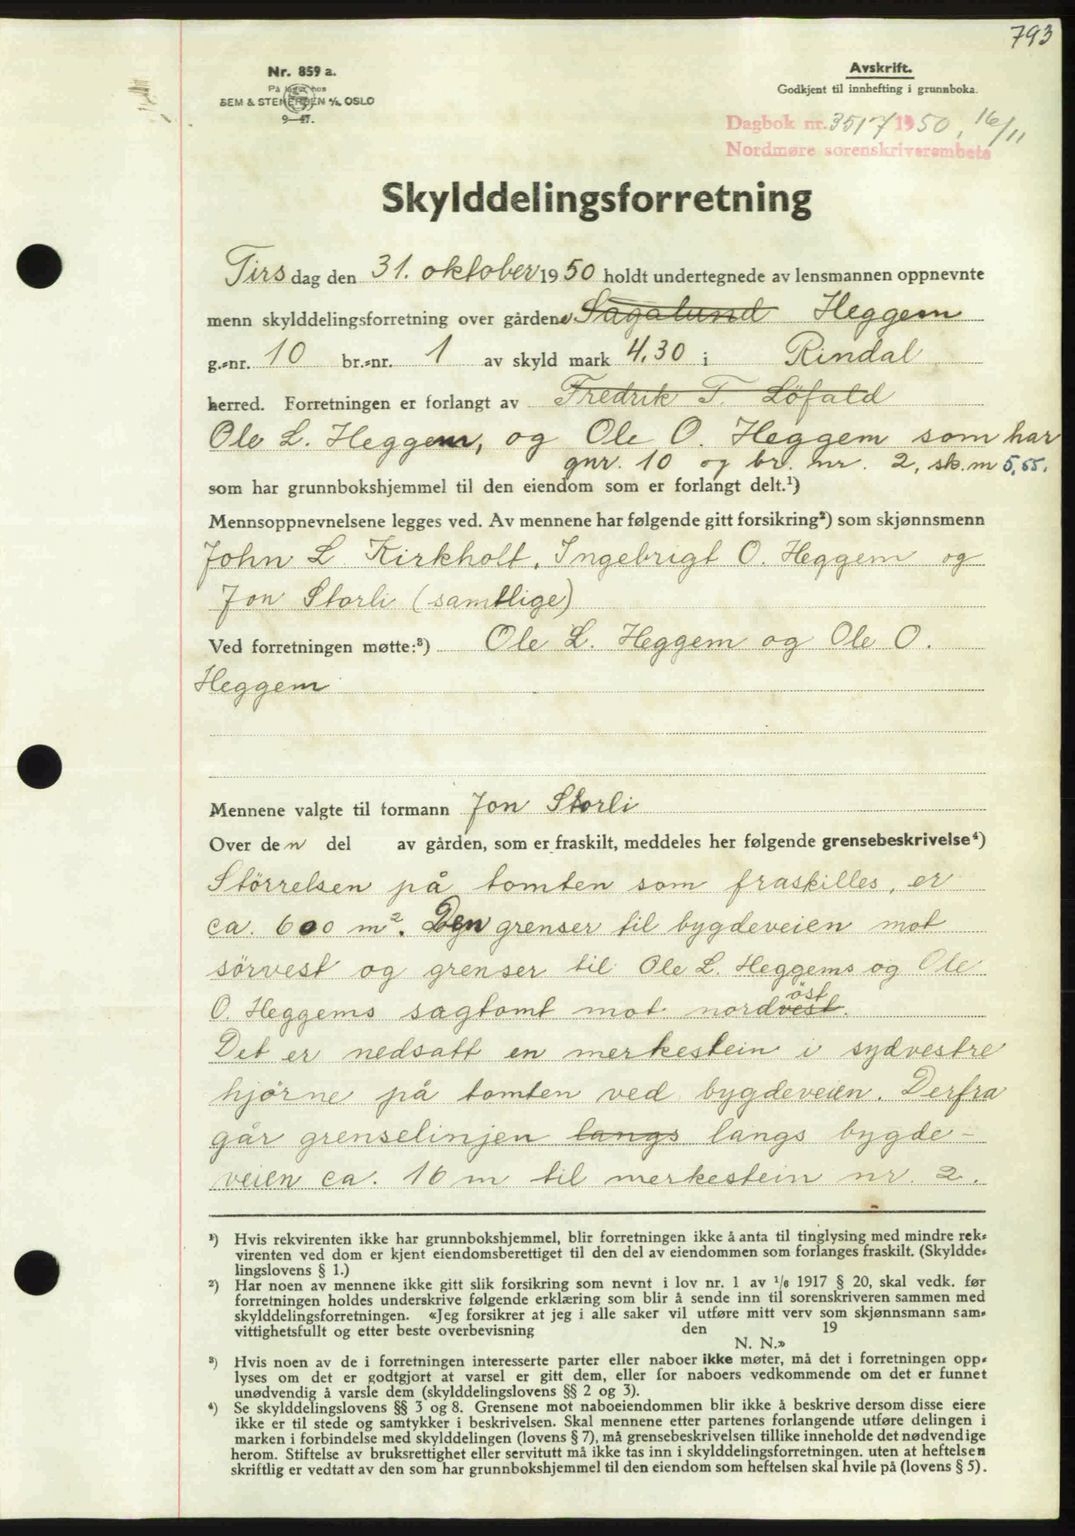 793
Nr. 859 a.
På lager hos
SEM & STENERSEN A/S, OSLO
9—47.
Avskrift.
Godkjent til innhefting i grunnboka.
Dagbok nr. 3517 1950, 16/11
Nordmøre sorenskriverembete
Skylddelingsforretning
Tirsdag den 31. oktober 1950 holdt undertegnede av lensmannen oppnevnte
menn skylddelingsforretning over gårdene Sagalund Heggem
g.-nr. 10 br.-nr. 1 av skyld mark 4.30 i Rindal
herred. Forretningen er forlangt av Fredrik T. Löfald
Ole L. Heggem, og Ole O. Heggem som har
gnr. 10 og br. nr. 2, sk.m 5,55.
som har grunnbokshjemmel til den eiendom som er forlangt delt.¹)
Mennsoppnevnelsene legges ved. Av mennene har følgende gitt forsikring²) som skjønnsmenn
John L. Kirkholt, Ingebrigt O. Heggem og
Jon Storli (samtlige)
Ved forretningen møtte:³) Ole L. Heggem og Ole O.
Heggem
Mennene valgte til formann Jon Storli
Over den del av gården, som er fraskilt, meddeles her følgende grensebeskrivelse⁴)
Störrelsen på tomten som fraskilles, er
ca. 600 m². Den grenser til bygdeveien mot
sörvest og grenser til Ole L. Heggems og Ole
O. Heggems sagtomt mot nordvest. öst
Det er nedsatt en merkestein i sydvestre
hjörne på tomten ved bygdeveien. Derfra
går grenselinjen langs langs bygde-
veien ca. 16 m til merkestein nr. 2.
¹) Hvis rekvirenten ikke har grunnbokshjemmel, blir forretningen ikke å anta til tinglysing med mindre rek-
virenten ved dom er kjent eiendomsberettiget til den del av eiendommen som forlanges fraskilt. (Skyldde-
lingslovens § 1.)
²) Har noen av mennene ikke gitt slik forsikring som nevnt i lov nr. 1 av ¹/₆ 1917 § 20, skal vedk. før
forretningen holdes underskrive følgende erklæring som blir å sende inn til sorenskriveren sammen med
skylddelingsforretningen. «Jeg forsikrer at jeg i alle saker vil utføre mitt verv som skjønnsmann sam-
vittighetsfullt og etter beste overbevisning den 19
N. N.»
³) Hvis noen av de i forretningen interesserte parter eller naboer ikke møter, må det i forretningen opp-
lyses om det er godtgjort at varsel er gitt dem, eller for naboers vedkommende om det er funnet
unødvendig å varsle dem (skylddelingslovens §§ 2 og 3).
⁴) Se skylddelingslovens §§ 3 og 8. Grensene mot naboeiendommen blir ikke å beskrive dersom disse eiere
ikke er til stede og samtykker i beskrivelsen. Skal mennene etter partenes forlangende utføre delingen i
marken i forbindelse med skylddelingen (lovens § 7), må grensebeskrivelsen tillike inneholde det nødvendige
herom. Stiftelse av bruksrettighet eller servitutt må ikke tas inn i skylddelingsforretningen, uten at heftelsen
skriftlig er vedtatt av den som har grunnbokshjemmel til den eiendom som heftelsen skal hvile på (lovens § 5).